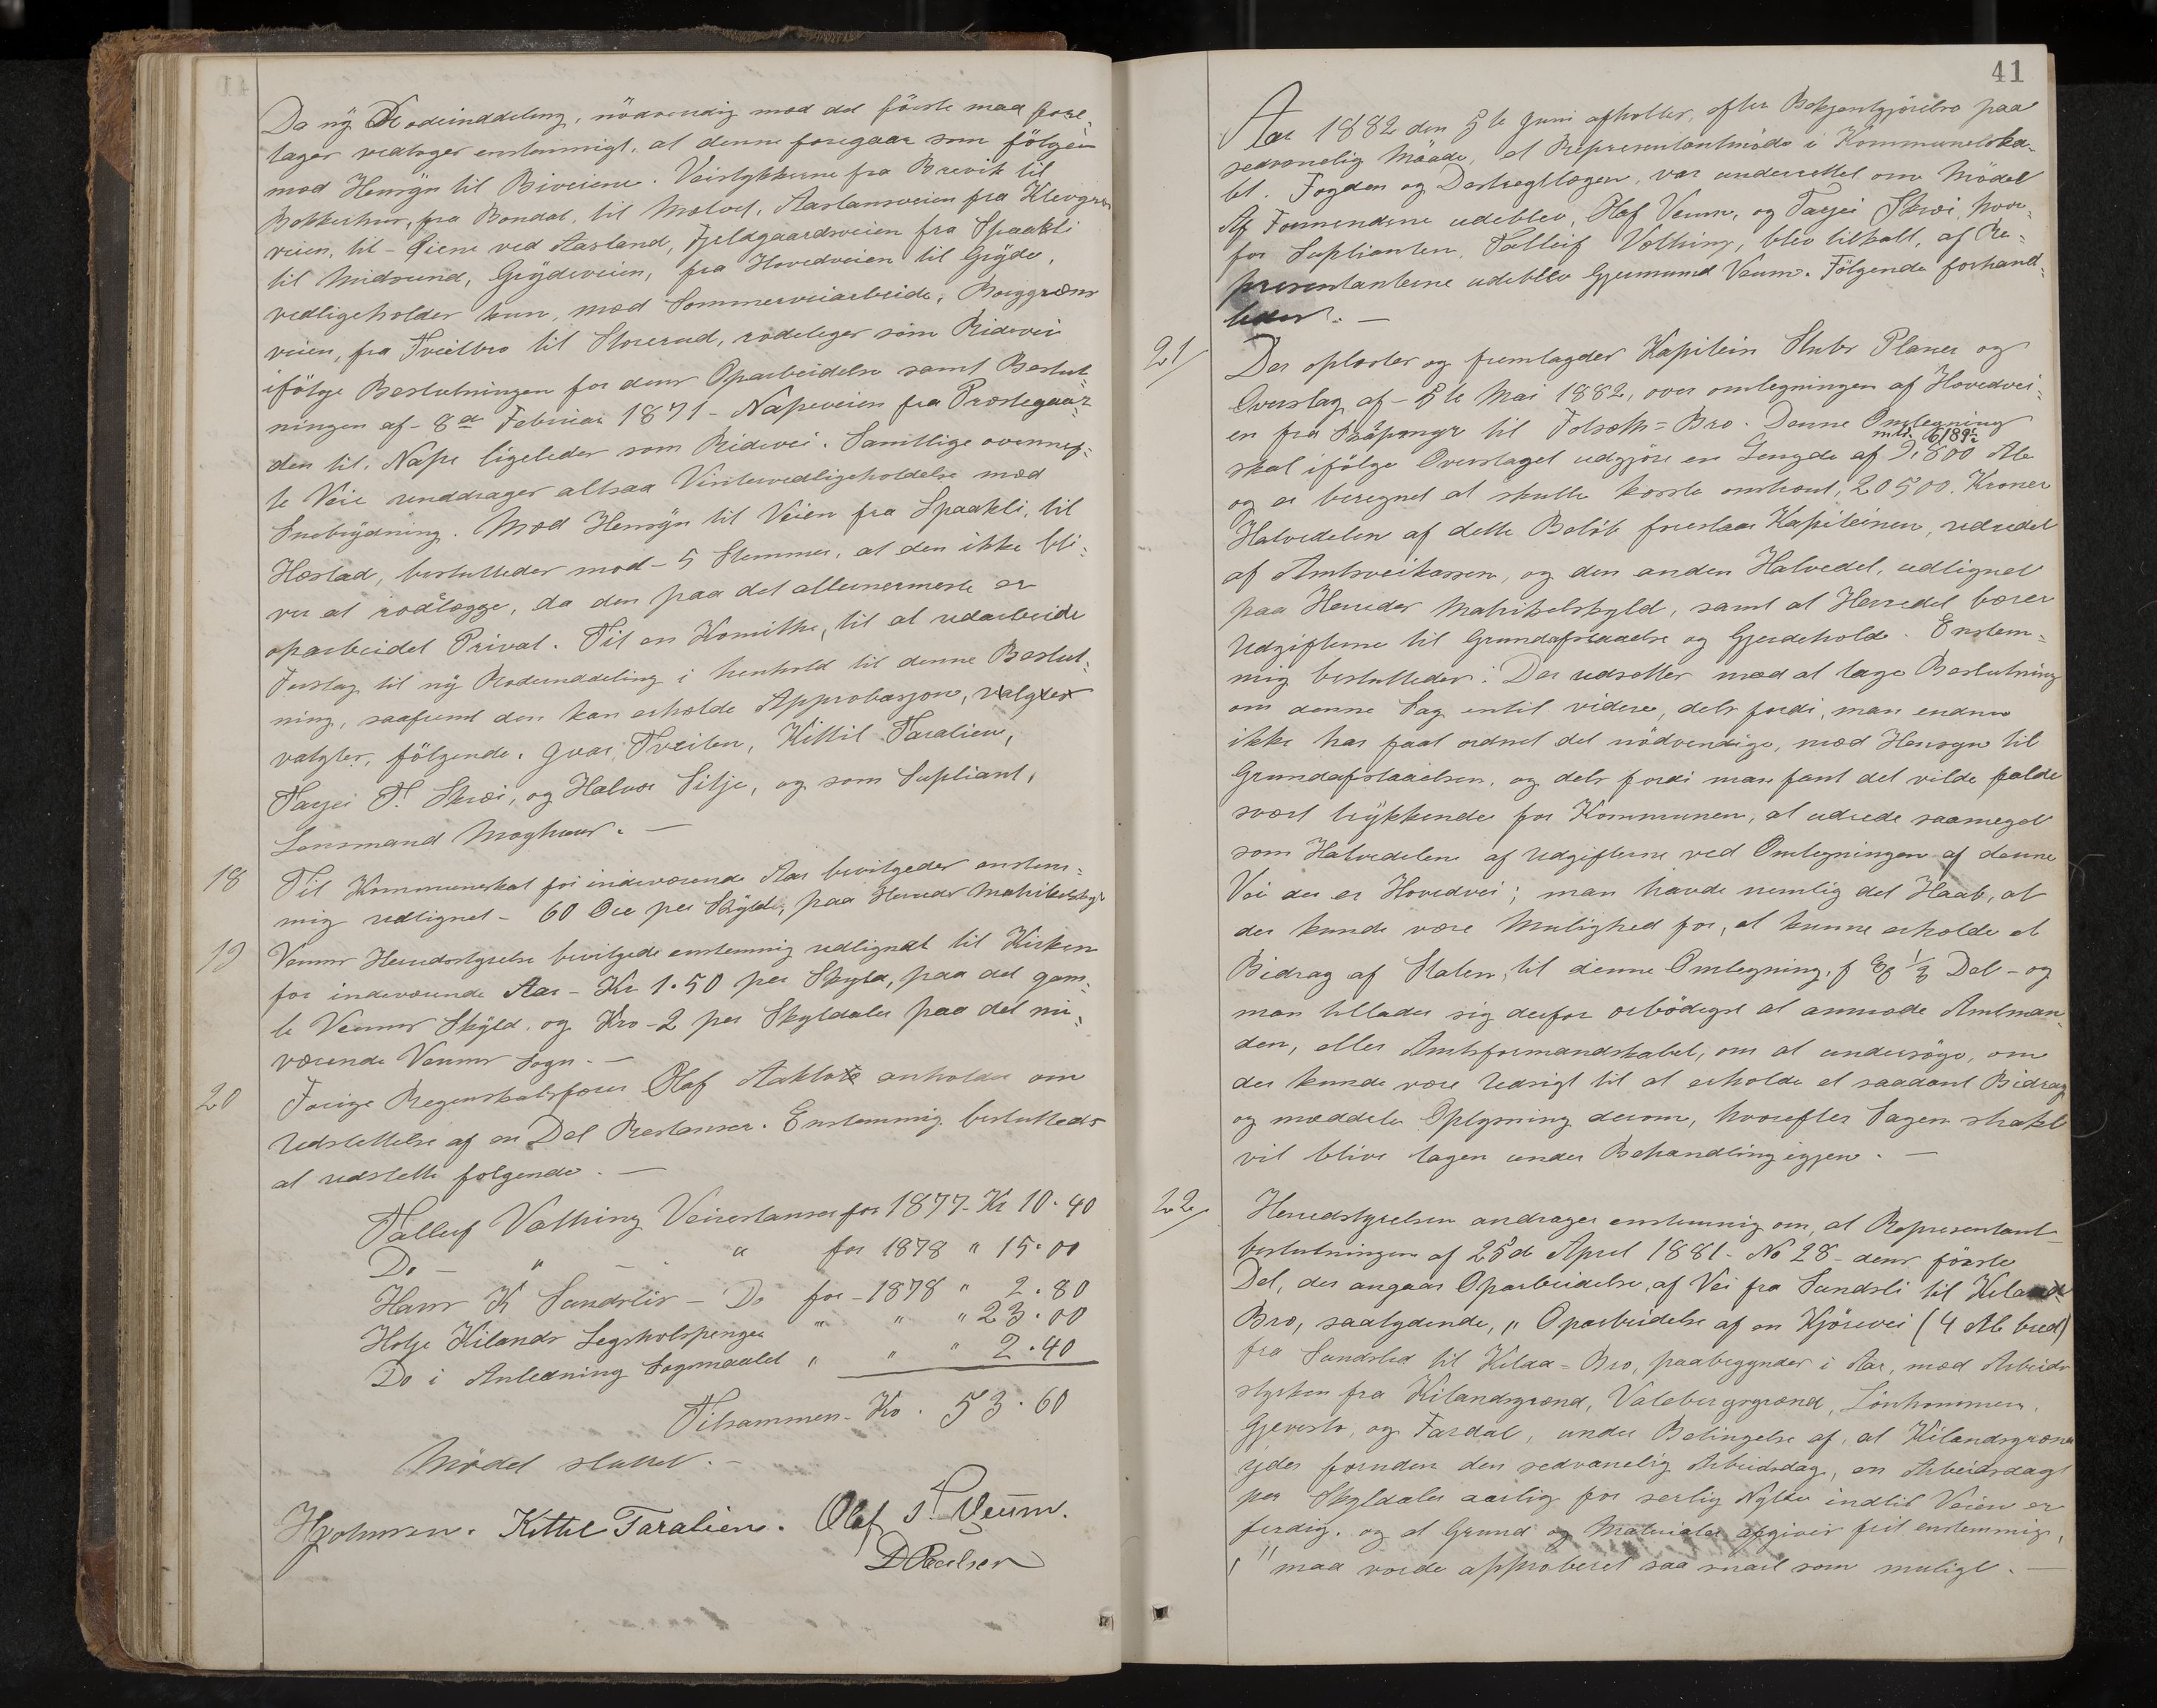 Da ny Rodeinddeling, nödvendig med det förste maa fore-
tages vedtoges enstemmigt, at denne foregaar som fölger
med Hensyn til Biveiene. Veistykkerne fra Brevik til
Bekkerhus, fra Bondal, til Molvet, Aaslansveien fra Klevgren
veien, til - Öiene ved Aasland, Fjeldgaardsveien fra Spaakli
til Midsund, Gröydeveien, fra Hovedveien til Gröyde,
vedligeholdes kun, med Sommerveiarbeide, Borggræns
veien, fra Tveitbro til Storerud, rodeleges som Ridevei
ifölge Beslutningen for dens Oparbeidelse samt Beslut-
ningen af - 8de Februar 1871 - Napeveien fra Præstegaar-
den til, Nape ligeledes som Ridevei. Samtlige ovennef-
te Veie unddrages altsaa Vintervedligeholdelse med
Snebrydning. Med Hensyn til Veien fra Spaakli, til
Hæstad, besluttedes mod - 5 Stemmer, at den ikke bli-
ver at rodlægge, da den paa det allernermeste er
oparbeidet Privat. Til en Komitte, til at udarbeide
Forslag til ny Rodeinddeling i henhold til denne Beslut-
ning, saafremt den kan erholde Approbasjon, valgtes
valgtes, fölgende. Ivar Tveiten, Kittil Taralien,
Tarjei T. Skræi, og Halvor Silje, og som Supliant,
Lensmand Moghuus. —
18 Til Kommuneskat for indeværende Aar bevilgedes enstem-
mig udlignet - 60 Öre per Skyldr, paa Herreds Matrikelskyl
19 Vennes Herredsstyrelse bevilgede enstemmig udlignet til Kirken
for indeværende Aar - Kr 1.50 per Skyld, paa det gam-
le Vennes Skyld, og Kro - 2 per Skyldaler paa det nu-
værende Vennes Sogn. —
20 Forige Regenskabsförer Olaf Aaklote anholder om
Udslettelse af en Del Restanser. Enstemmig besluttedes
at udslette folgende. —
Tallef Vathing Veirestanser for 1877 - Kr 10.40
Do — " — " for 1878 " 15.00
Hans K Sandslir - Do for - 1878 " 2.80
Holje Kilands Legsholspenger " " " 23.00
Do i Anledning Sogsmaalet " " " 2.40
Tilsammen - Kr. 53.60
Mödet sluttet. —
Kittil Taralien. Olaf S. Veum.
D Paulsen
41
Aar 1882 den 5te Juni afholtes, efter Bekjentgjörelse paa
sedvanelig Maade, et Representantmöde i Kommuneloka-
let. Fogden og Destregtlægen, var underrettet om Mödet
Af Formendene udeblev, Olaf Veum, og Tarjei Skræi, hvor-
for Suplianten, Tallleif Vathing, blev tilkalt, af Re-
presentanterne udeblev Gjermund Veum. Fölgende forhand-
ledes. —
21/ Der oplæstes og fremlagdes Kapitein Stubs Planer og
Overslag af - 5te Mai 1882, over omlegningen af Hovedvei-
en fra Skåpmyr til Folsæth=Bro. Denne Omlegning
skal ifölge Overslaget udgjöre en Lengde af 9.800 Al
og er beregnet at skulle koste omtrent, 20500 Kroner
Halvedelen af dette Belöb foreslaar Kapiteinen, udredet
af Amtsveikassen, og den anden Halvedel, udlignet
paa Herreds Matrikelskyld, samt at Herredet bærer
Udgifterne til Grundafstaaelse og Gjerdehold. Enstem-
mig besluttedes: Det udsettes med at tage Beslutning
om denne Sag intil videre, dels fordi, man endnu
ikke har faat ordnet det nödvendige, med Hensyn til
Grundafstaaelsen, og dels fordi man fant det vilde falde
svært trykkende for Kommunen, at udrede saameget
som Halvedelen af Udgifterne ved Omlegningen af denne
Vei der er Hovedvei; man havde nemlig det Haab, at
der kunde være Mulighed for, at kunne erholde et
Bidrag af Staten, til denne Omlegning, f Ex 1/3 Del - og
man tillader sig derfor erbödigst at anmode Amtman-
den, eller Amtsformandskabet, om at undersöge, om
der kunde være Udsigt til at erholde et saadant Bidrag
og meddele Oplysning derom, hvorefter Sagen strakt
vil blive tagen under Behandling igjen. —
22/ Herredstyrelsen andrager enstemmig om, at Representant-
beslutningen af 25de April 1881 - No 28 - dens förste
Del, der angaar Oparbeidelse, af Vei fra Sandsli til Kiland
Bro, saalydende, " Oparbeidelse af en Kjörevei (4 Al bred)
fra Sandslid til Kilaa=Bro, paabegyndes i Aar, med Arbeids
styrken fra Kilandsgrænd, Valebergsgrænd, Lönhommen,
Gjevesto, og Fardal, under Betingelse af, at Kilandsgrænd
yder foruden den sedvanelig Arbeidsdag, en Arbeidsdag
per Skyldaler aarlig for særlig Nytte indtil Veien er
ferdig, og at Grund og Materialer afgives frit enstemmig,
" maa vorde approberet saa snart som muligt. —